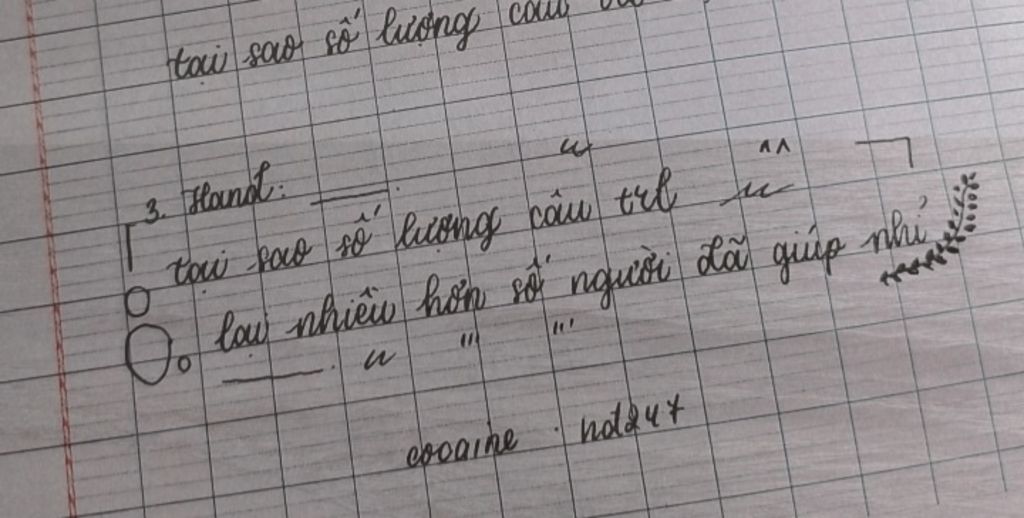 tại sao số lượng câu
3. Hand:
tại sao số lượng câu trl
lại nhiều hơn số người đã giúp nhỉ
cocaine.